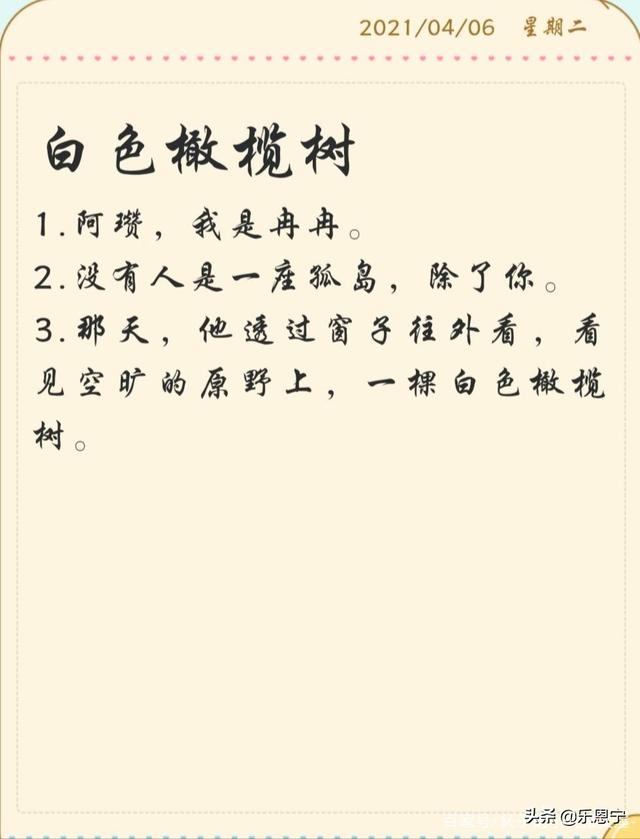 2021/04/06 星期二
白色橄榄树
1.阿瓒，我是冉冉。
2.没有人是一座孤岛，除了你。
3.那天，他透过窗子往外看，看
见空旷的原野上，一棵白色橄榄
树。
头条 @乐恩宁